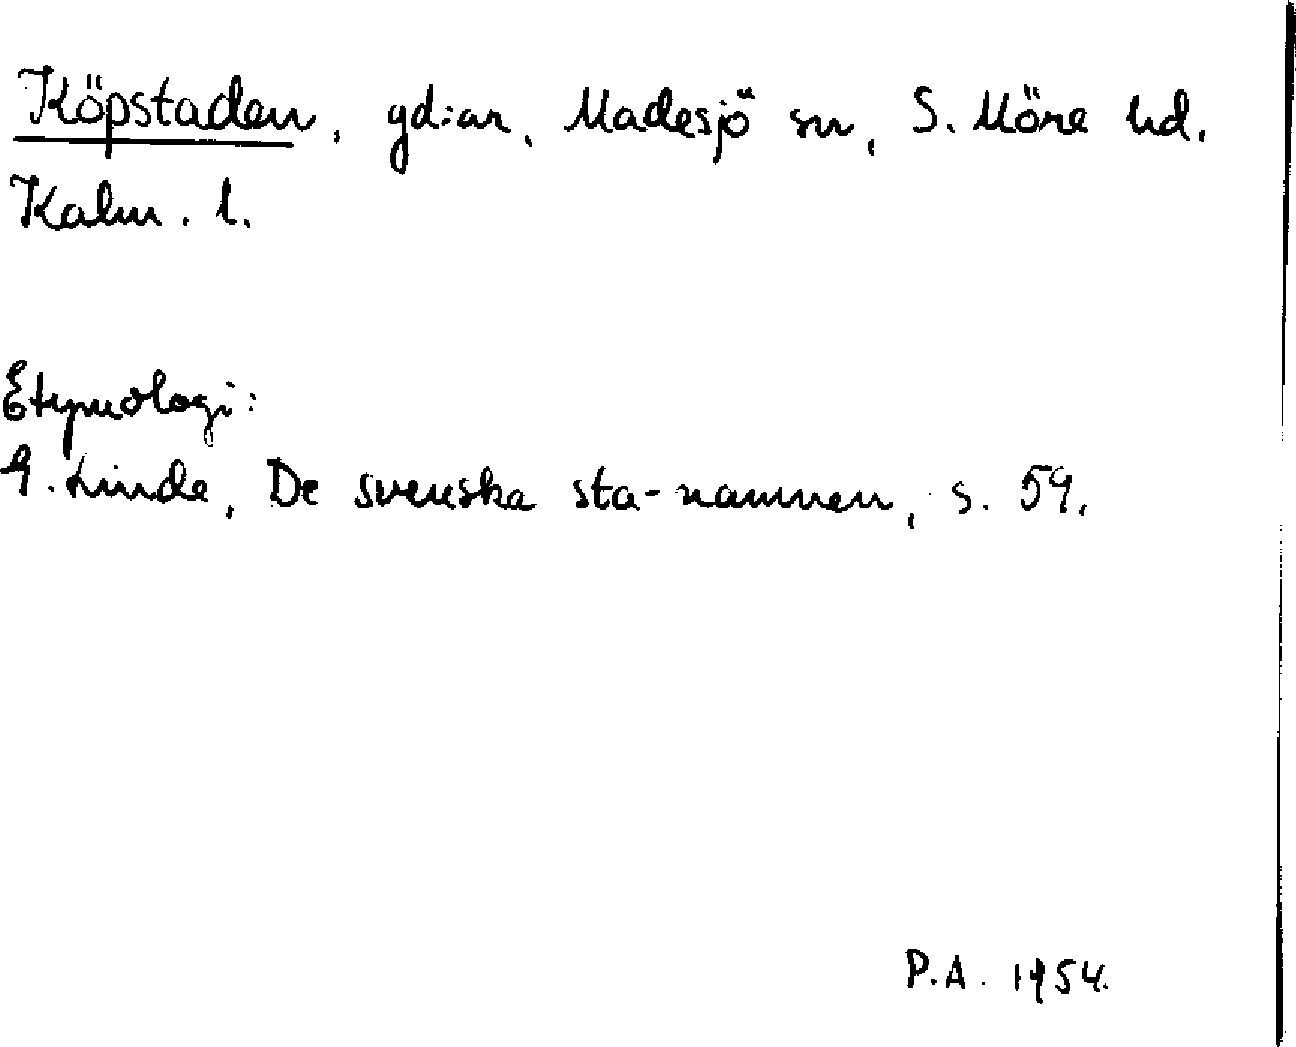 Köpstaden, gd:ar, Madesjö sn, S. Möre hd.
Kalm. l.
Etymologi:
G. Linde, De svenska sta-namnen, s. 59.
P.A. 1954.